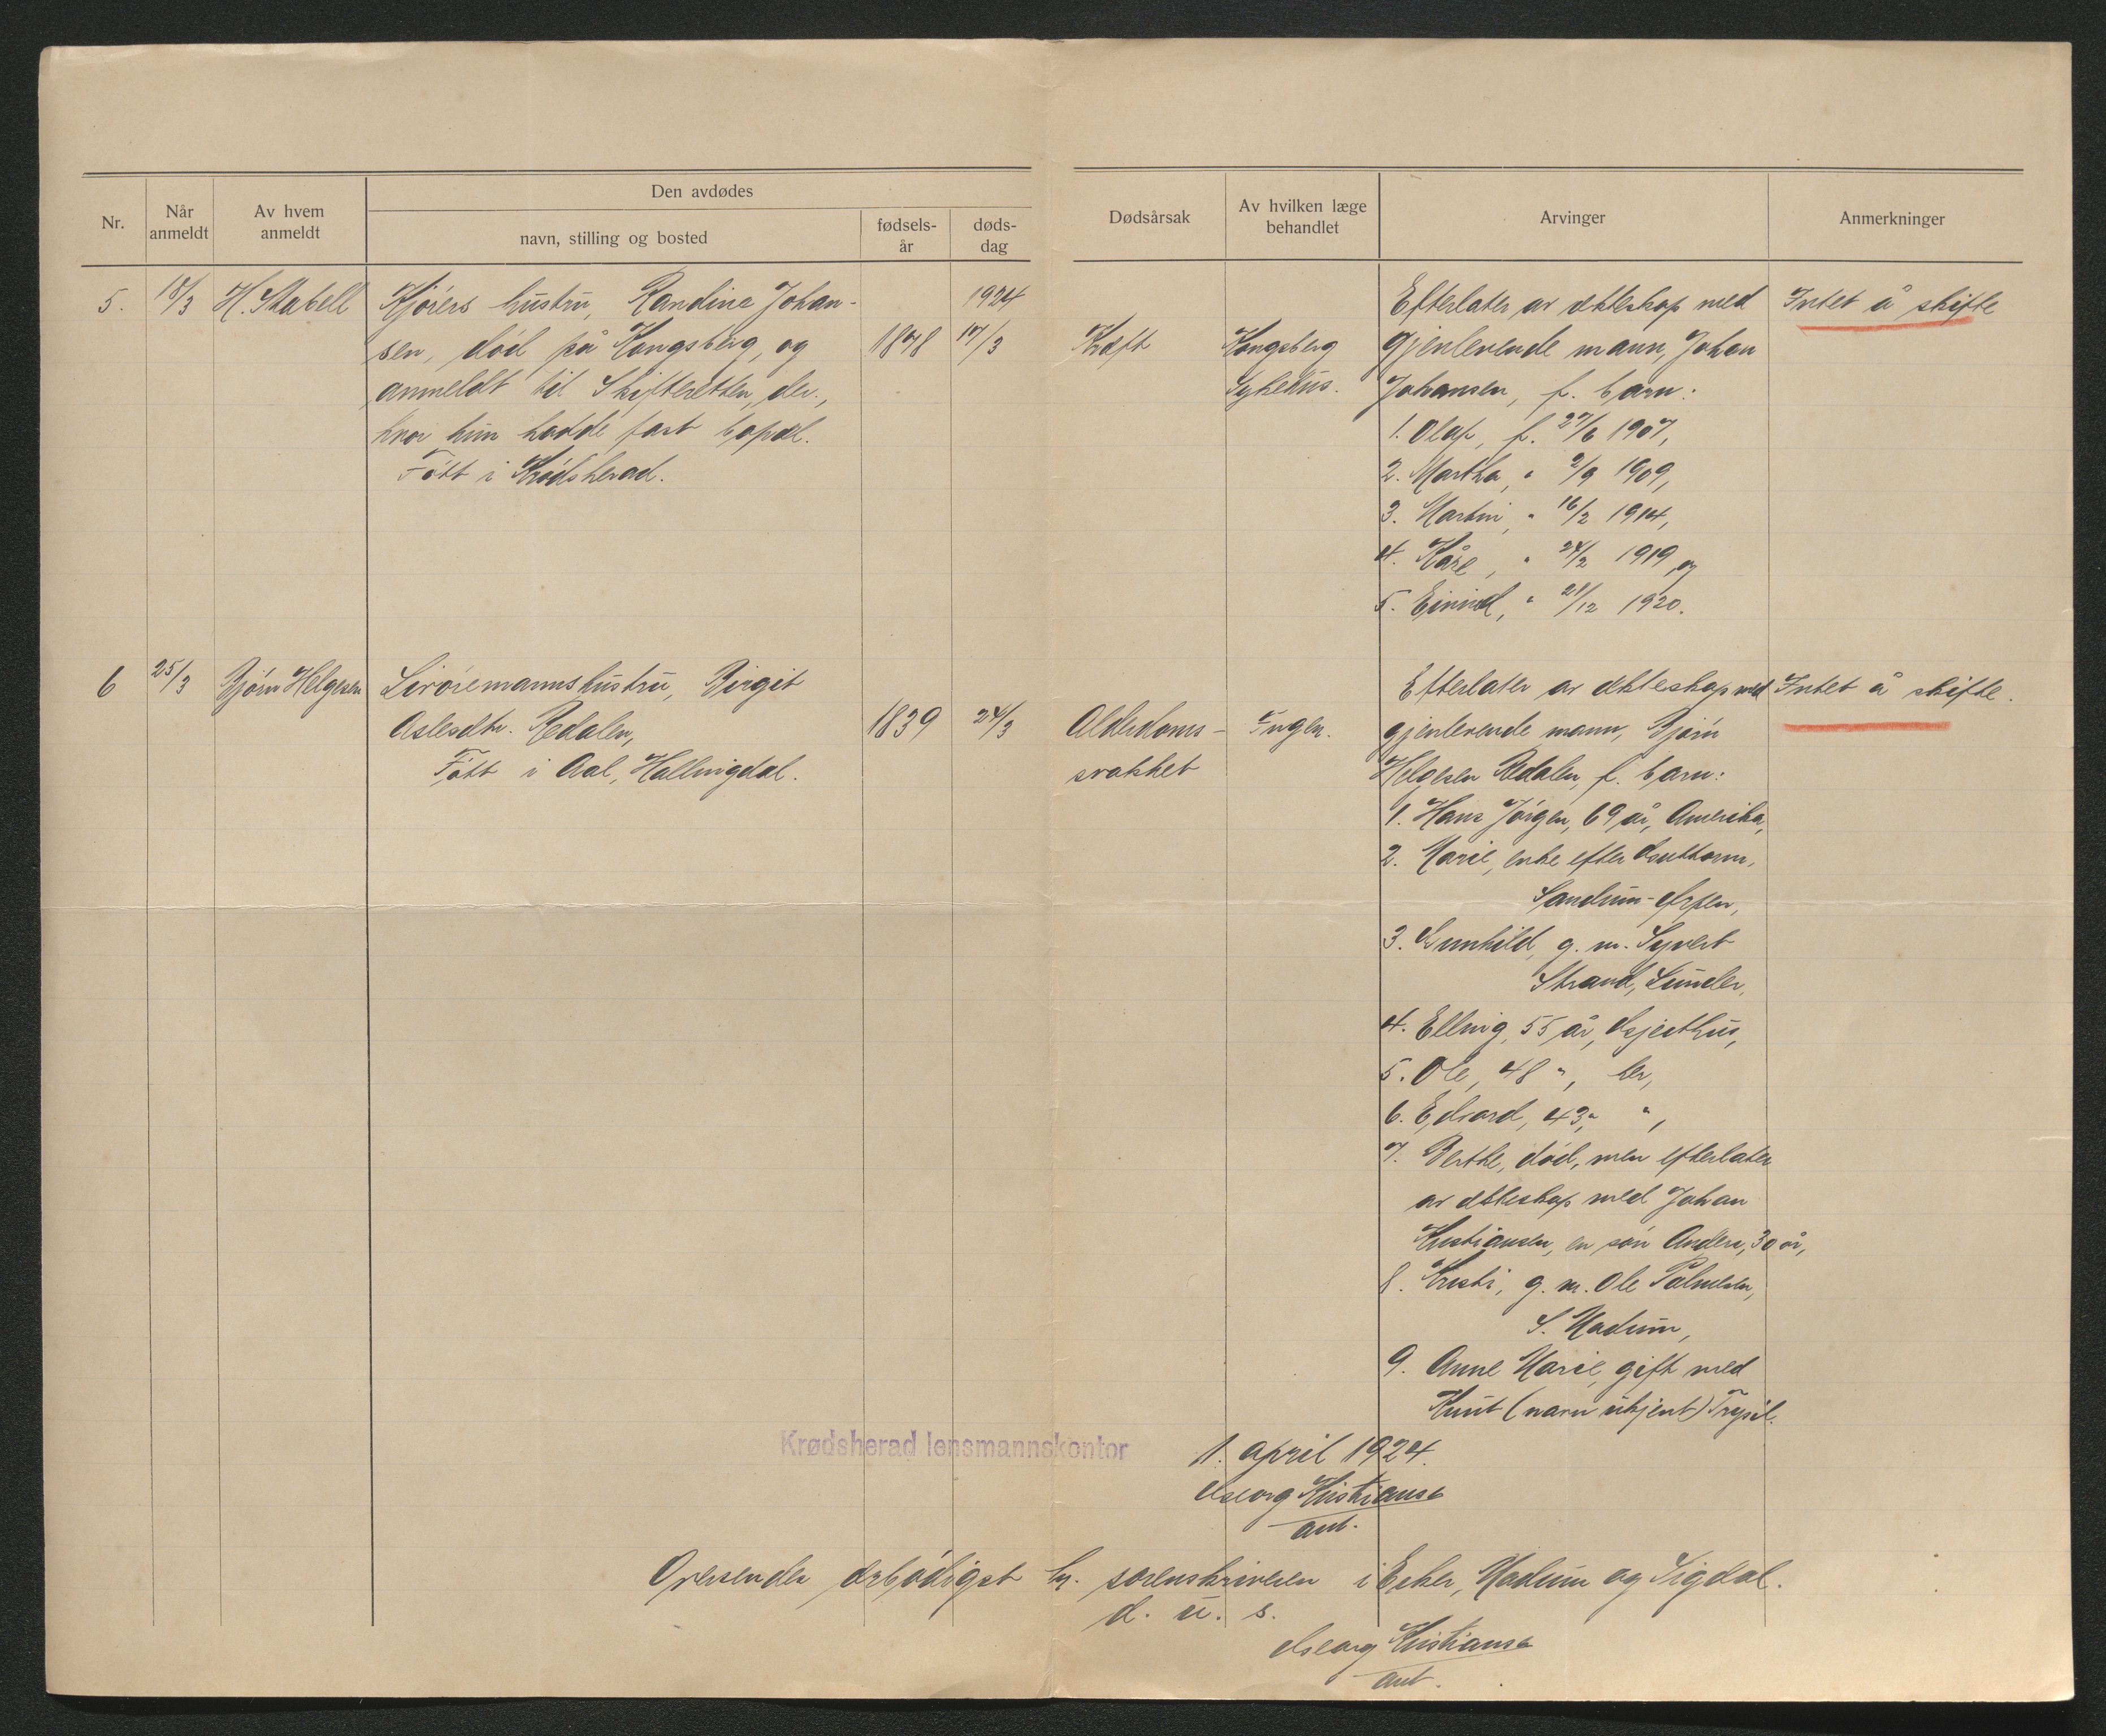 Den avdødes
Nr.
Når anmeldt
Av hvem anmeldt
navn, stilling og bosted
fødsels-år
døds-dag
Dødsårsak
Av hvilken læge behandlet
Arvinger
Anmerkninger
5. 18/3 H. Stabell Kjørers hustru, Randine Johan- 1924 Efterlater av ekteskap med Intet å skifte
sen, død på Kongsberg, og 1878 17/3 Kræft Kongsberg gjenlevende mann, Johan
anmeldt til Skifteretten, der., Sykehus. Johansen, f. barn:
hvor hun hadde fast bopæl. 1. Olaf, f. 27/6 1907,
Født i Krødsherad. 2. Martha, " 2/9 1909,
3. Martin, " 16/2 1914,
4. Kåre, " 24/2 1919, og
5. Eivind, " 21/12 1920.
6 25/3 Bjørn Helgesen Livøremannshustru, Birgit Efterlater av ekteskap med Intet å skifte.
Aslesdtr. Redalen, 1839 24/3 Alderdoms- Ingen. gjenlevende mann, Bjørn
Født i Aal, Hallingdal. svakhet Helgesen Redalen, f. barn:
1. Hans Jørgen, 69 år, Amerika,
2. Marie, enke efter Guttorm,
Sandum-
3. Gunhild, g. m. Syvert
Strand, Lunder,
4. Elling, 55 år, Gjesthus,
5. Ole, 48 ", her,
6. Edvard, 43 ", ",
7. Berthe, død, men efterlater
av ekteskap med Johan
Kristiansen, en søn Anders, 30 år,
8. Kristi, g. m. Ole Palmesen,
S. Modum,
9. Anne Marie, gift med
Knut (navn ukjent) Trysil.
Krødsherad lensmannskontor 1. april 1924.
Georg Kristiansen
ant.
Oversendes ærbødigst hr. sorenskriveren i Eiker, Modum og Sigdal.
d. u. s.
Georg Kristiansen
ant.